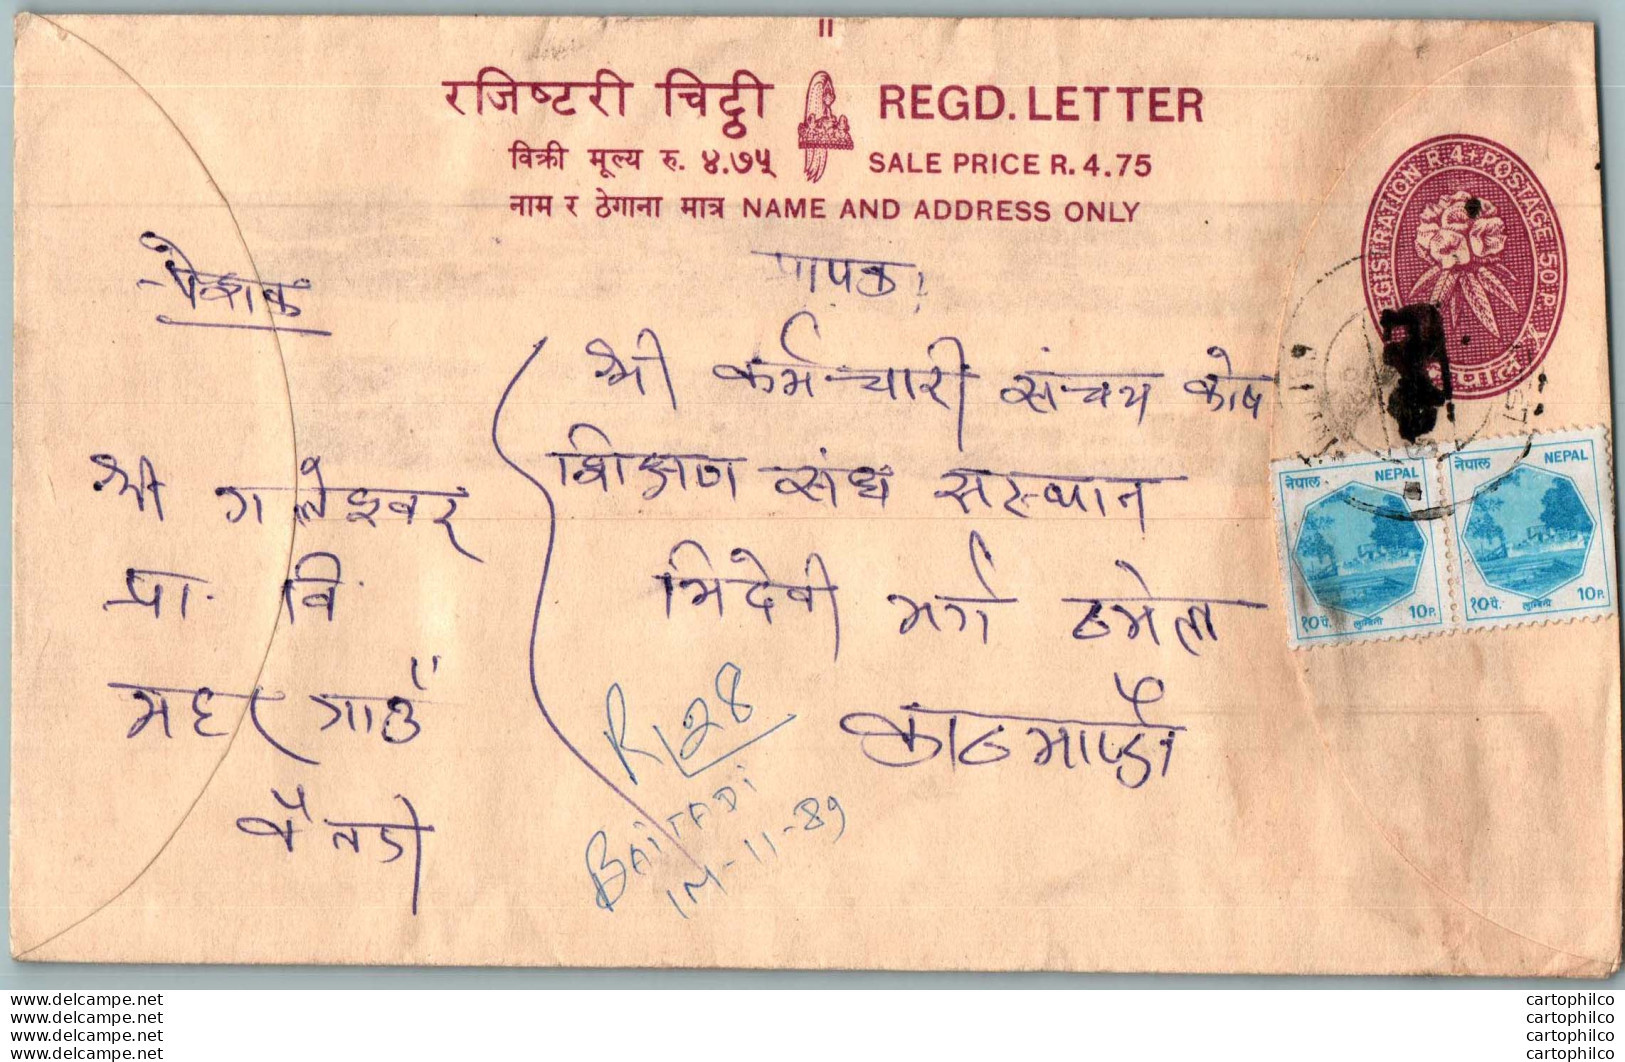 रजिष्टरी चिट्ठी REGD. LETTER
विक्री मूल्य रु. ४.७५ SALE PRICE R. 4.75
नाम र ठेगाना मात्र NAME AND ADDRESS ONLY
REGISTRATION R 4/- POSTAGE 50 P.
प्रापक
श्री कर्मचारी संचय कोष
शिक्षण संघ संस्थान
त्रिदेवी मर्ग ठमेल
काठमाण्डौ
प्रेषक
श्री गलेश्वर
प्रा. वि.
महर गाउँ
बैतडी
R 128
BAITADI
14-11-89
नेपाल NEPAL
१० पै. लुम्बिनी 10 P.
नेपाल NEPAL
१० पै. लुम्बिनी 10 P.
www.delcampe.net
www.delcampe.net
www.delcampe.net
www.delcampe.net
cartophilco
cartophilco
cartophilco
cartophilco